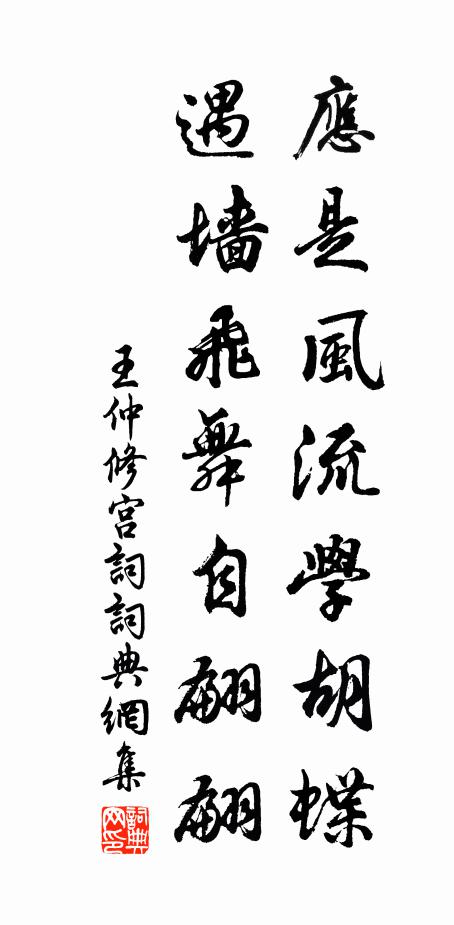 應是風流學胡蝶
遇墻飛舞自翩翩
王仲修宫詞詞典網集
詞典网印